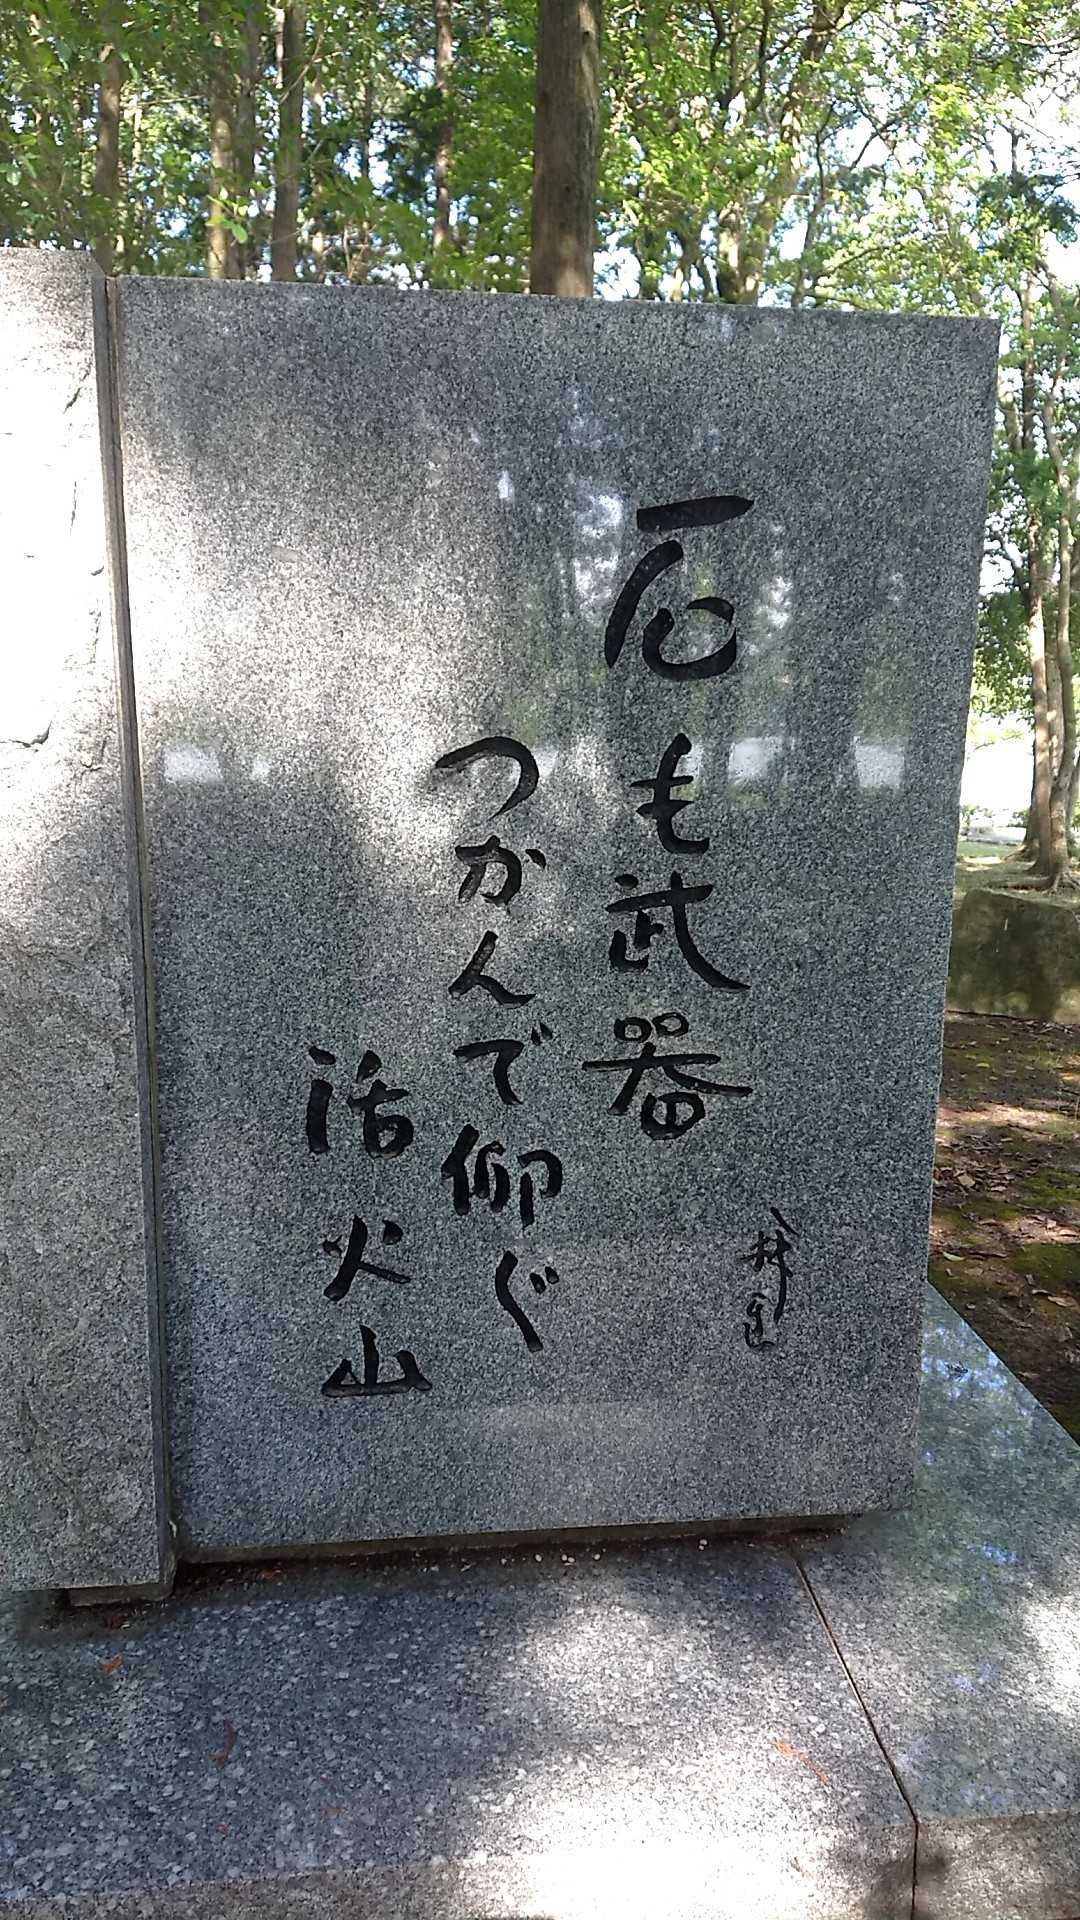 石も武器
つかんで仰ぐ
活火山